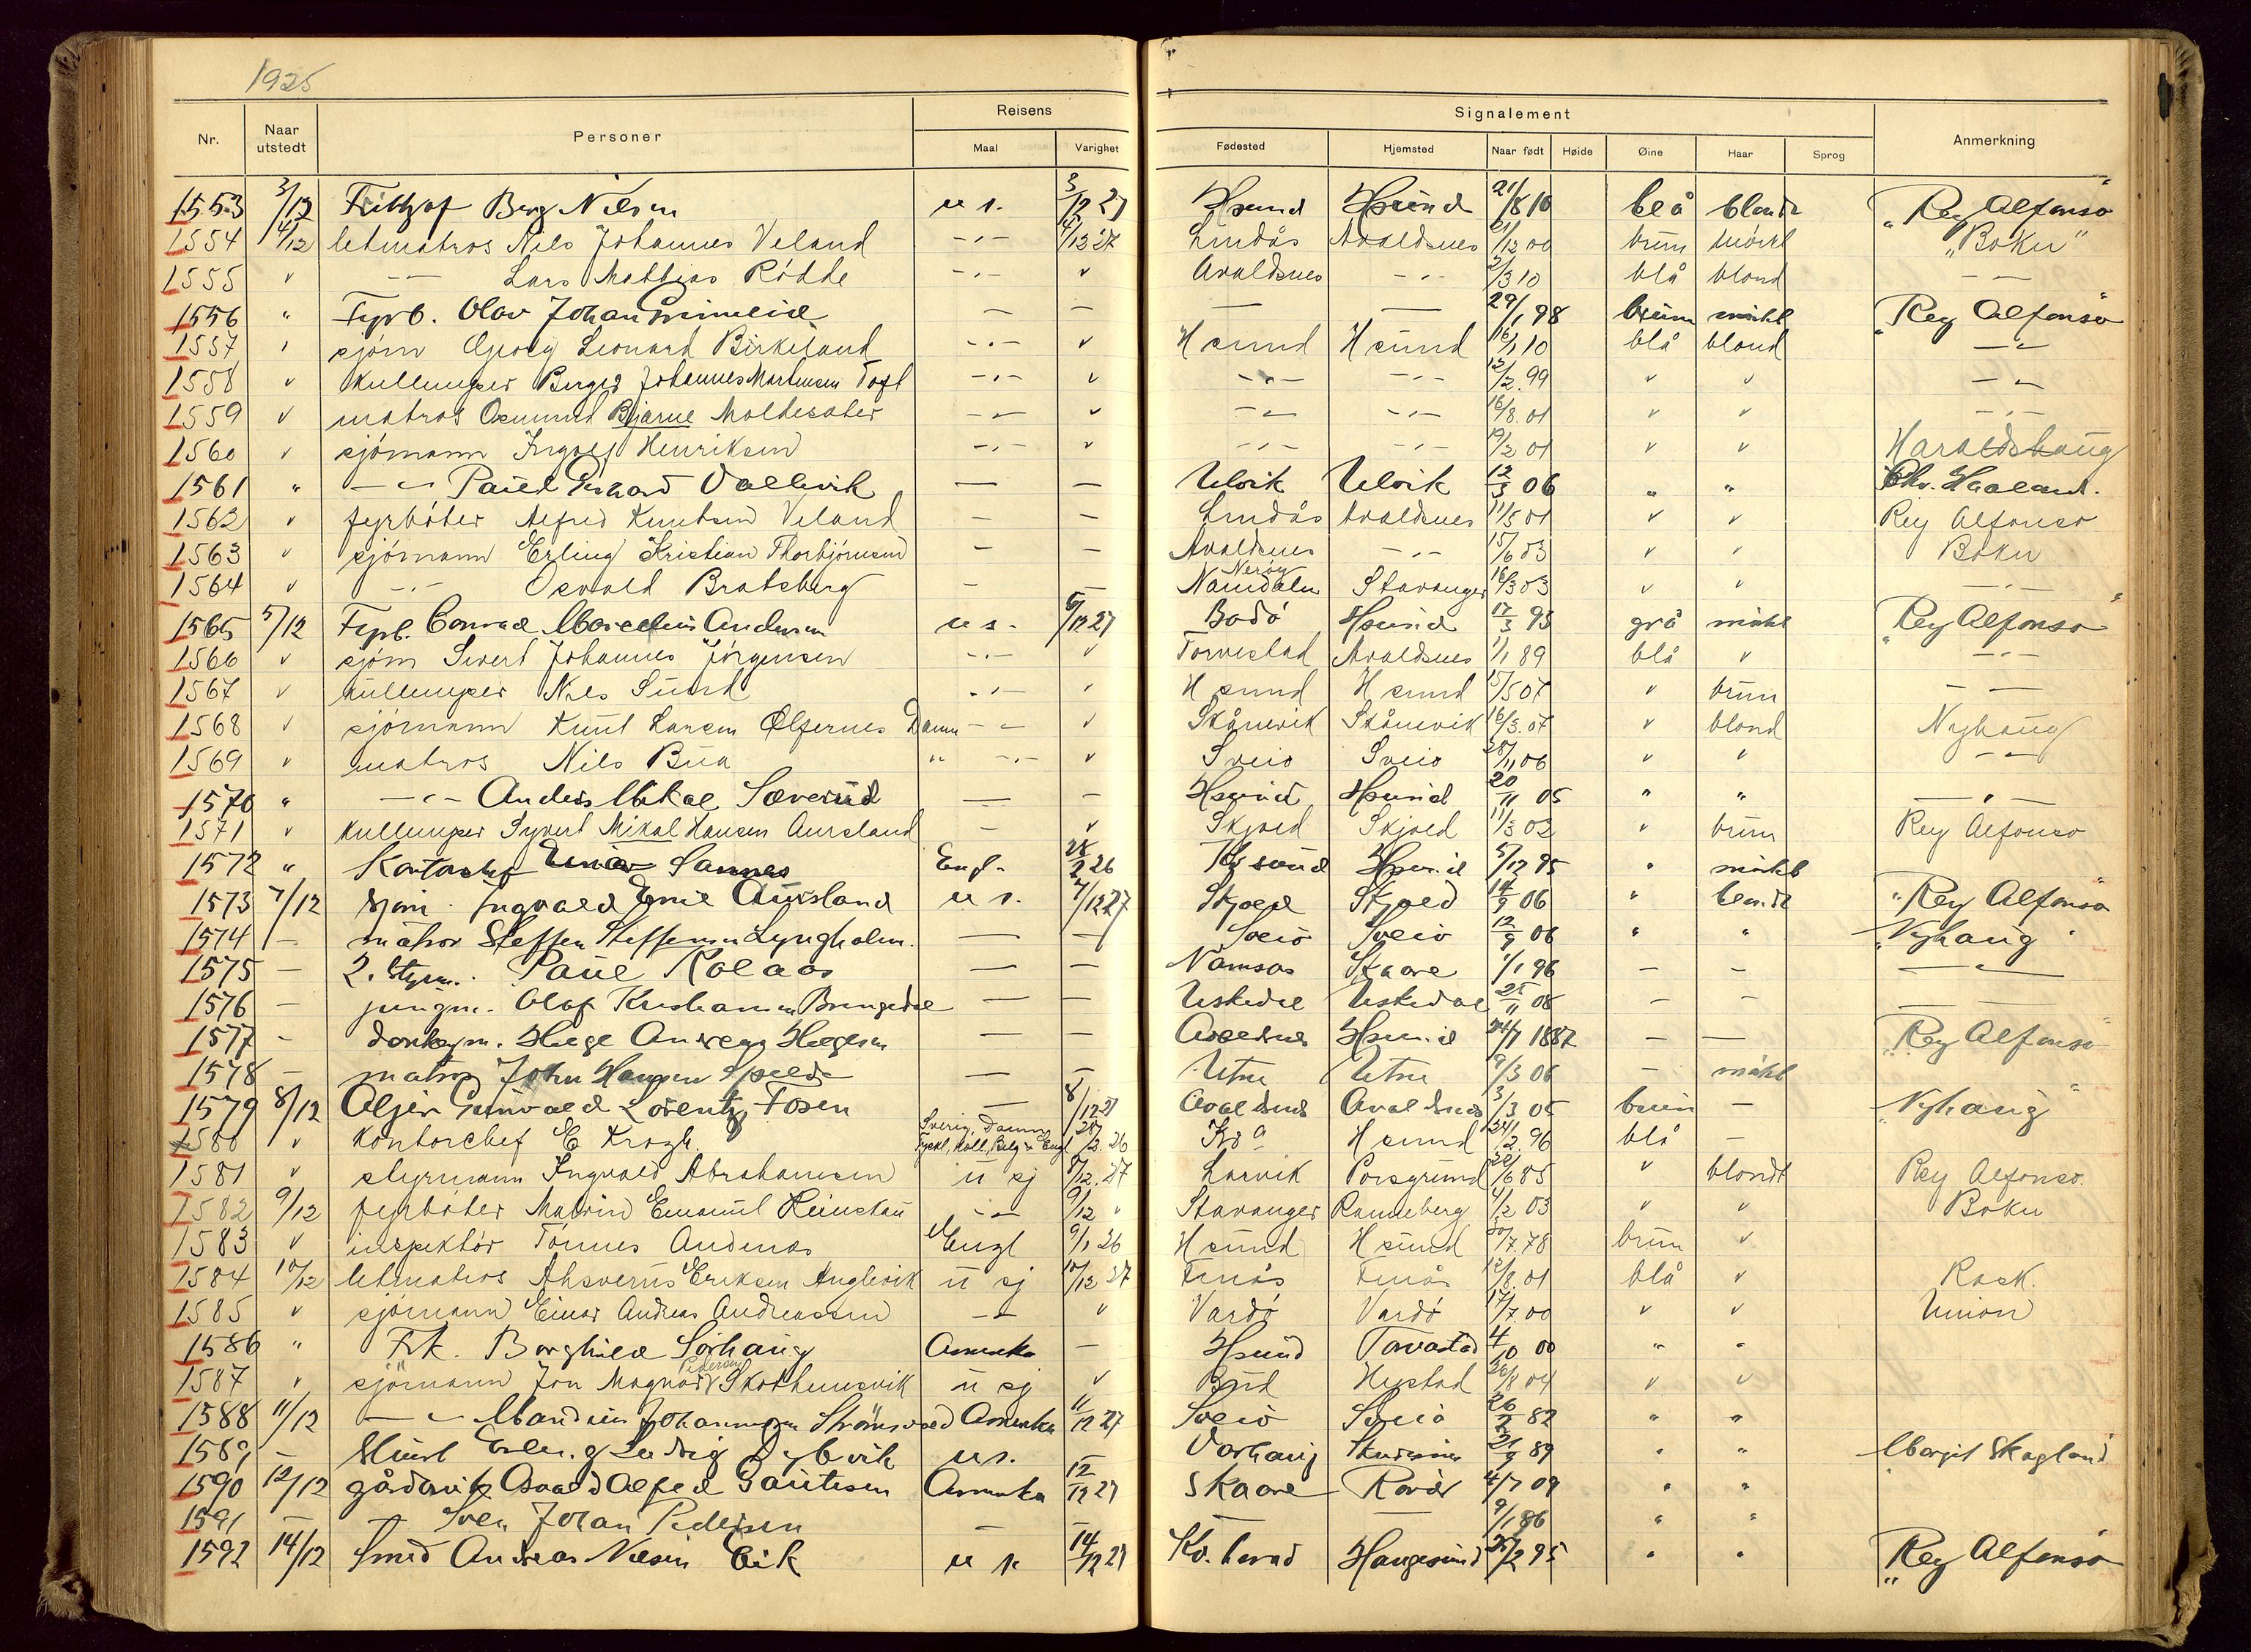 1925
Nr. Naar utstedt Personer Reisens Maal Varighet Signalement Fødested Hjemsted Naar født Høide Øine Haar Sprog Anmerkning
1553 3/12 Fritjof Berg Nilsen u s. 3/12 27 Hsund Hsund 21/8 10 blå blondt "Rey Alfonso"
1554 4/12 letmatros Nils Johannes Veland -"- 4/12 27 Lindås Avaldsnes 21/12 00 brun mörkt "Boku"
1555 " -"- Lars Mathias Rödde -"- " Avaldsnes -"- 2/3 10 blå blond -"-
1556 " Fyrb. Olav Johan — — — — 29/1 98 brun mörkt "Rey Alfonso"
1557 " sjöm Georg Leonard Birkeland -"- " H sund H sund 16/1 10 blå blond -"-
1558 " kullemper Birger Johannes Martinsen Toft -"- " -"- -"- 12/2 99 " " -"-
1559 " matros Osmund Bjarne Moldesæter -"- " -"- -"- 16/8 01 " " -"-
1560 " sjömann Ingolf Henriksen -"- " -"- -"- 19/2 01 " " Haraldshaug
1561 " -"- Paul Gerhard Vallevik — — Ulvik Ulvik 12/3 06 " " Chr. Haaland.
1562 " fyrböter Alfred Knutsen Veland — — Lindås Avaldsnes 11/5 01 " " Rey Alfonso
1563 " sjömann Erling Kristian Thorbjörnsen — — Avaldsnes -"- 15/6 03 " " Boku
1564 " -"- Osvald Bratsberg — — Neröy Namdalen Stavanger 16/3 03 " " -"-
1565 5/12 Fyrb. Conrad Marelius Andersen u s. 5/12 27 Bodö Hsund 17/3 93 grå mörkt "Rey Alfonso"
1566 " sjöm Sivert Johannes Jörgensen -"- " Torvestad Avaldsnes 1/1 89 blå " -"-
1567 " kullemper Nils Sund -"- " H sund H sund 15/5 07 " brun — —
1568 " sjömann Knut Larsen Ølfernes Danm -"- " Skånevik Skånevik 16/3 07 " blond Nyhaug
1569 " matros Nils Bua " -"- " Sveio Sveio 28/11 06 " " -"-
1570 " -"- Anders Mikal Sæverud — — Hsund Hsund 20/11 05 " " — " —
1571 " kullemper Syvert Mikal Hansen Aursland — " Skjold Skjold 11/3 02 " brun Rey Alfonso
1572 " Kontorchef Einar Sannes Engl. 28/2 26 Kr sund Hsund 5/12 95 " mörkt
1573 7/12 Sjöm. Ingvald Emil Aursland u s. 7/12 27 Skjold Skjold 14/9 06 " blondt "Rey Alfonso"
1574 — matros Steffen Steffensen Lyngholm. — — Sveio Sveio 12/9 06 " " "Nyhaug"
1575 — 2. Styrm. Paul Kolaas — — Namsos Skaare 1/1 96 — — -"-
1576 — jungm. Olaf Kristiansen — — Uskedal Uskedal 25/11 08 — — — —
1577 — donkeym. Helge Helgesen — — Avaldsnes Hsund 24/7 1887 — — "Rey Alfonso"
1578 — matros John Hansen Opeda — — Utne Utne 9/3 06 — mörkt
1579 8/12 Alfer Gunvald Lorentz Fosen — 8/12 27 Avaldsnes Avaldsnes 3/3 05 brun — "Nyhaug"
1580 " Kontorchef E Krogh. Sverig, Danm, Tyskl, Holl, Belg & Engl 28/2 26 Kr.a H sund 24/2 96 blå —
1581 " styrmann Ingvald Abrahamsen u sj 8/12 27 Larvik Porsgrund 22/6 85 " blondt Rey Alfonso.
1582 9/12 fyrböter Martin Emanuel Heinstau -"- 9/12 " Stavanger Ranneberg 4/2 03 " " Boku
1583 " inspektör Tönnes Andenæs Engl 9/1 26 H sund H sund 30/7 78 brun "
1584 10/12 letmatros Ahsverus Eriksen Anglevik u sj 10/12 27 Finås Finås 12/8 01 blå " Rask.
1585 " sjömann Einar Andreas Andreassen -"- " Vardö Vardö 17/7 00 " " Union
1586 " Frk. Borghild Sörhaug Amerika — Hsund Torvastad 4/10 00 " "
1587 " sjömann Jon Magnar Pedersen Skothemsvik u sj " Bud Hustad 26/8 04 " "
1588 11/12 -"- Mandius Johannesen Strömsvold Amerika 11/12 27 Sveio Sveio 26/2 82 " "
1589 — Stuert Erling Ludvig Dybvik u s. Varhaug Skudesnes 21/9 89 " " Margit Skogland
1590 12/12 gårdbruk Osvald Alfred Gautesen Amerika 12/12 27 Skaare Rövær 4/7 09 " "
1591 — — Sven Johan Pedersen — — — — 9/1 86 " "
1592 14/12 Smed Andreas Nilsen Eik u s. 14/12 27 Kv. herad Haugesund 25/2 95 " " "Rey Alfonso